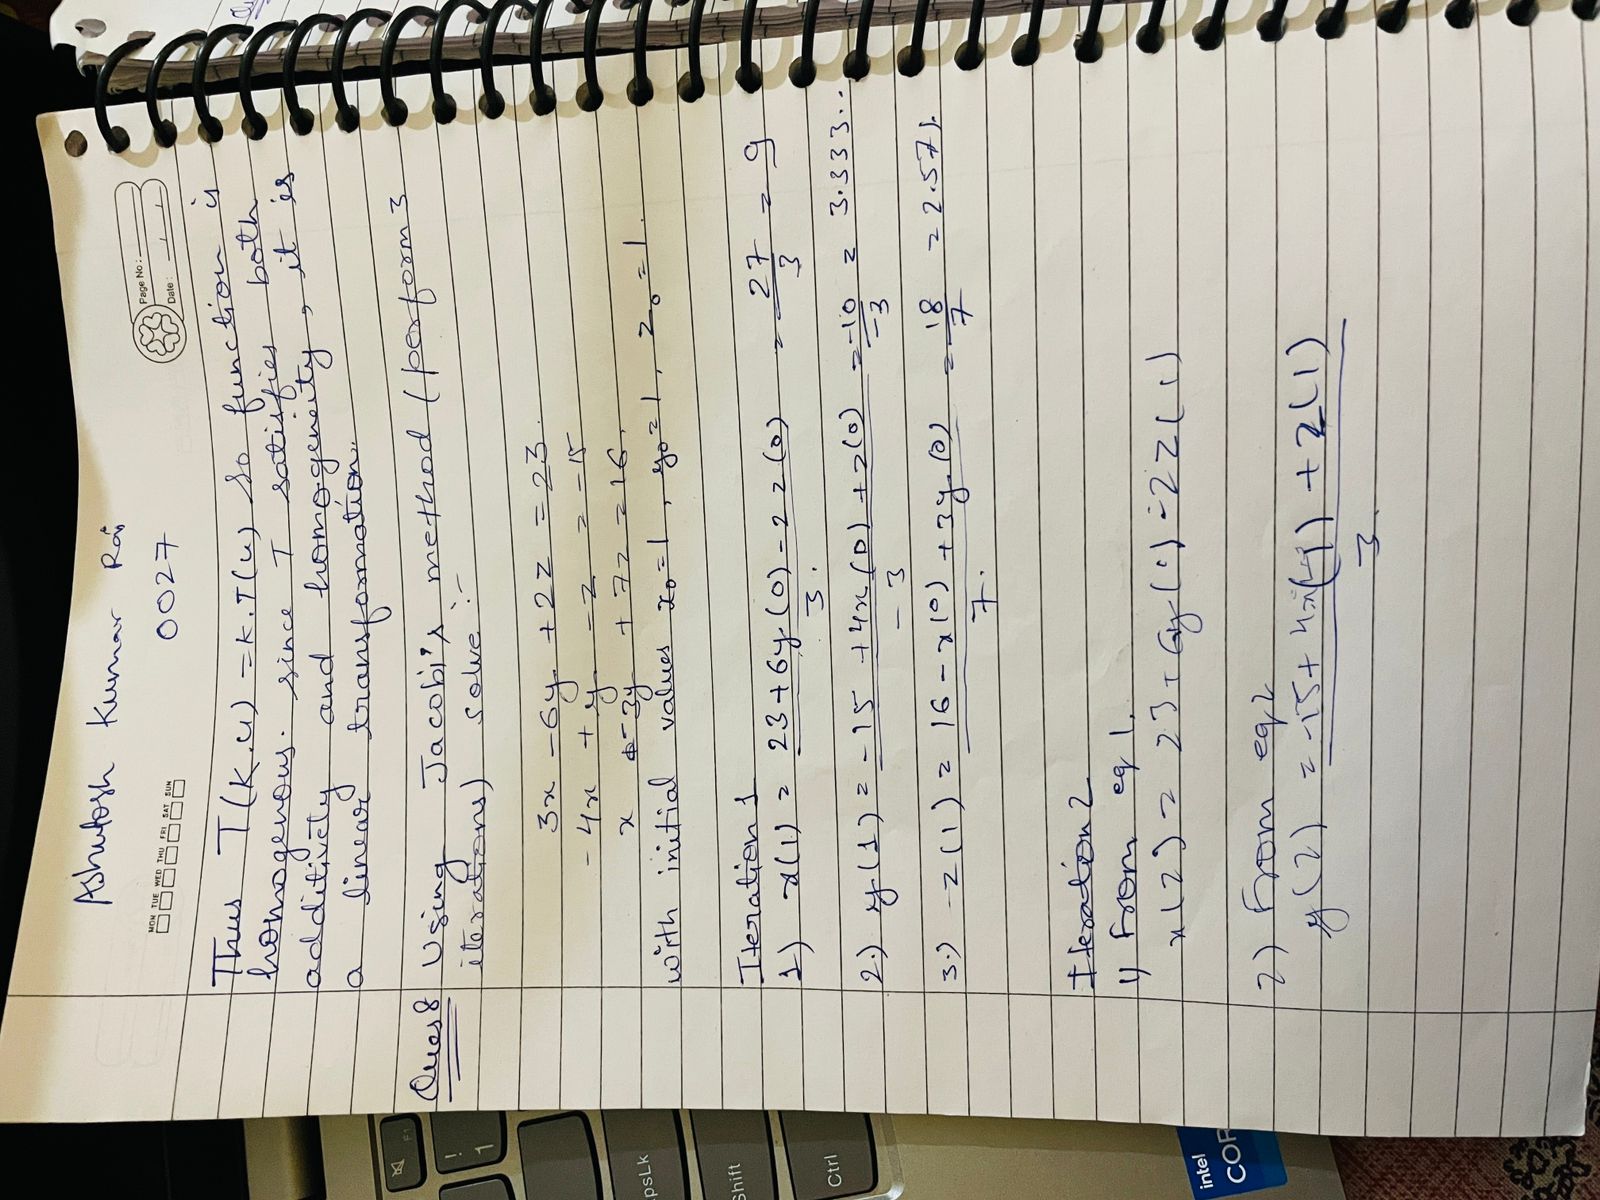 Ashutosh Kumar Rai
0027
MON TUE WED THU FRI SAT SUN
Page No:
Date:
Thus T(K.u) = K.T(u) so function is
homogenous. since T satisfies both
additivity and homogeneity, it is
a linear transformation.
Ques8 Using Jacobi's method (perform 3
iterations) solve :-
3x - 6y + 2z = 23.
- 4x + y - z = -15
x - 3y + 7z = 16.
with initial values x₀=1, y₀=1, z₀=1.
Iteration 1
1) x(1) = 23+6y(0)-2z(0)/3. = 27/3 = 9
2.) y(1) = -15 + 4x(0) + z(0)/-3 = -10/-3 = 3.333..
3.) z(1) = 16 - x(0) + 3y(0)/7. = 18/7 = 2.571.
Iteration 2
1) From eq 1.
x(2) = 23 + 6y(1) - 2z(1)
2) From eq 2
y(2) = -15 + 4x(1) + z(1)/3.
intel
COR
Ctrl
Shift
psLk
F1
!
1